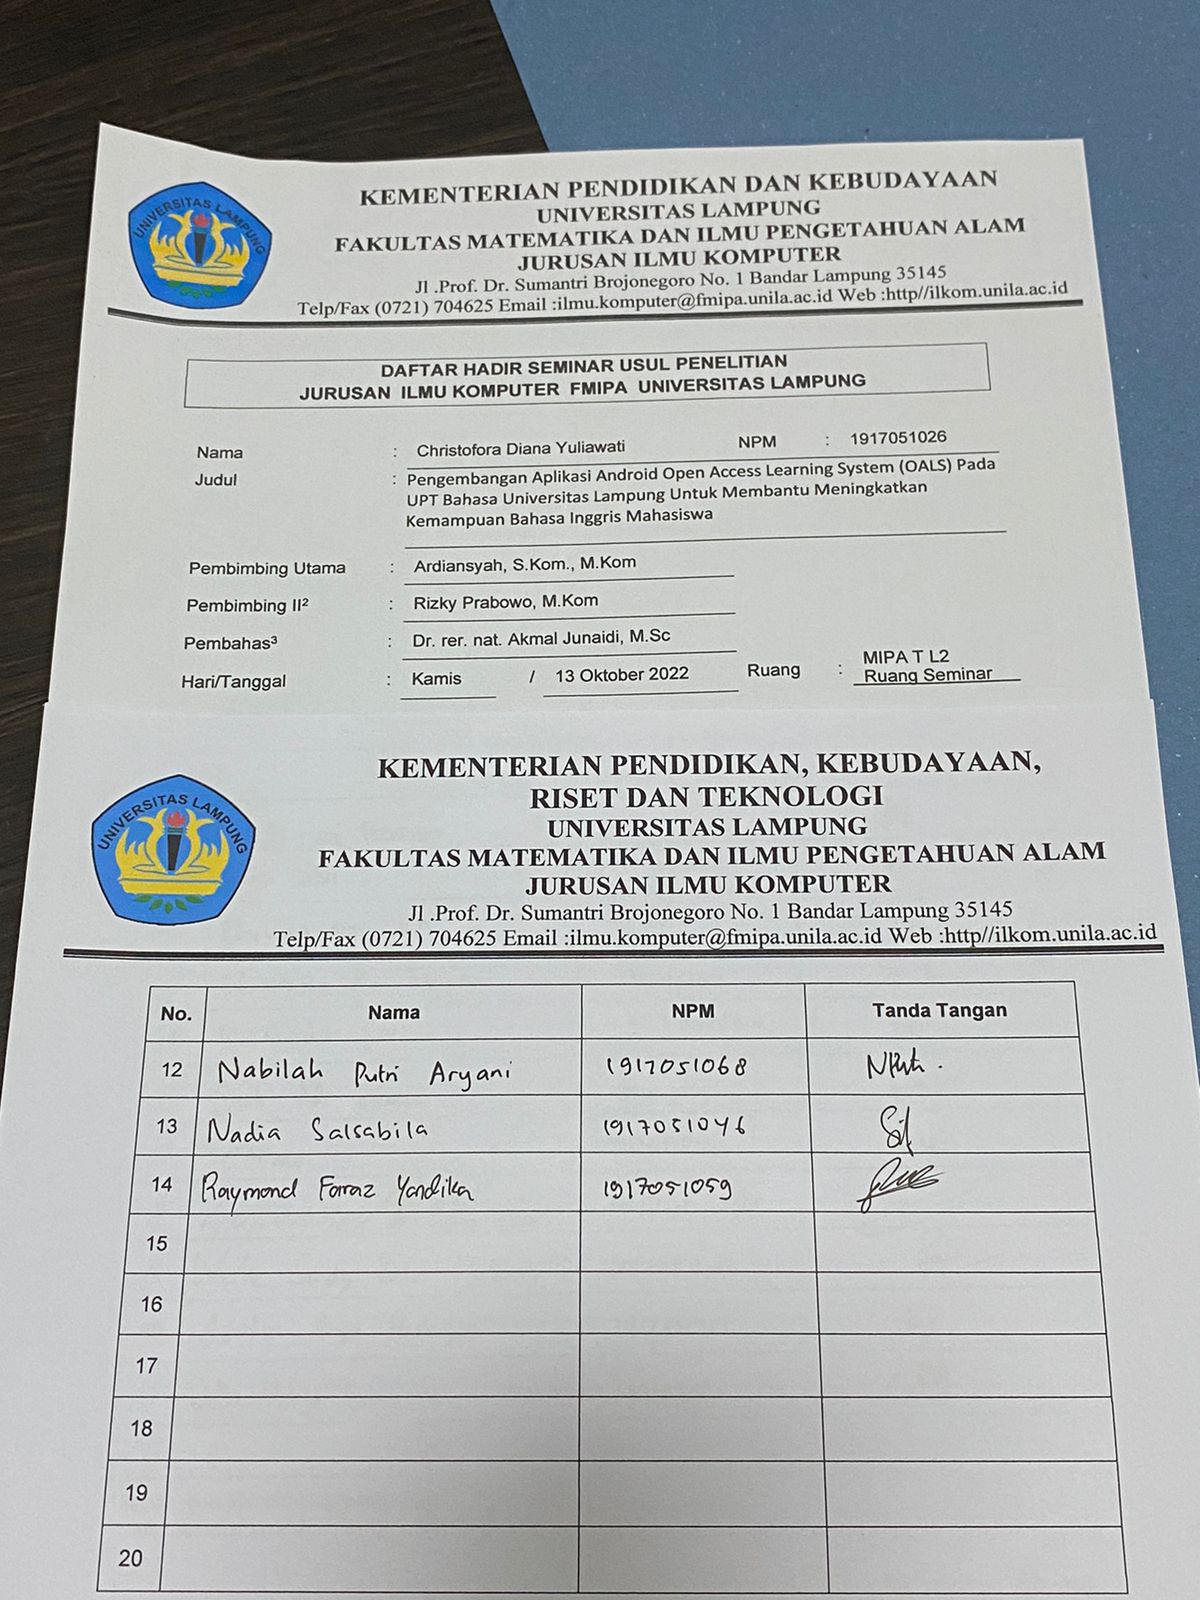 UNIVERSITAS LAMPUNG
KEMENTERIAN PENDIDIKAN DAN KEBUDAYAAN
UNIVERSITAS LAMPUNG
FAKULTAS MATEMATIKA DAN ILMU PENGETAHUAN ALAM
JURUSAN ILMU KOMPUTER
Jl .Prof. Dr. Sumantri Brojonegoro No. 1 Bandar Lampung 35145
Telp/Fax (0721) 704625 Email :ilmu.komputer@fmipa.unila.ac.id Web :http//ilkom.unila.ac.id
DAFTAR HADIR SEMINAR USUL PENELITIAN
JURUSAN ILMU KOMPUTER FMIPA UNIVERSITAS LAMPUNG
Nama : Christofora Diana Yuliawati NPM : 1917051026
Judul : Pengembangan Aplikasi Android Open Access Learning System (OALS) Pada
UPT Bahasa Universitas Lampung Untuk Membantu Meningkatkan
Kemampuan Bahasa Inggris Mahasiswa
Pembimbing Utama : Ardiansyah, S.Kom., M.Kom
Pembimbing II² : Rizky Prabowo, M.Kom
Pembahas³ : Dr. rer. nat. Akmal Junaidi, M.Sc
Hari/Tanggal : Kamis / 13 Oktober 2022 Ruang : MIPA T L2
Ruang Seminar
UNIVERSITAS LAMPUNG
KEMENTERIAN PENDIDIKAN, KEBUDAYAAN,
RISET DAN TEKNOLOGI
UNIVERSITAS LAMPUNG
FAKULTAS MATEMATIKA DAN ILMU PENGETAHUAN ALAM
JURUSAN ILMU KOMPUTER
Jl .Prof. Dr. Sumantri Brojonegoro No. 1 Bandar Lampung 35145
Telp/Fax (0721) 704625 Email :ilmu.komputer@fmipa.unila.ac.id Web :http//ilkom.unila.ac.id
No. Nama NPM Tanda Tangan
12 Nabilah Putri Aryani 1917051068
13 Nadia Salsabila 1917051046
14 Raymond Farraz Yandika 1917051059
15
16
17
18
19
20